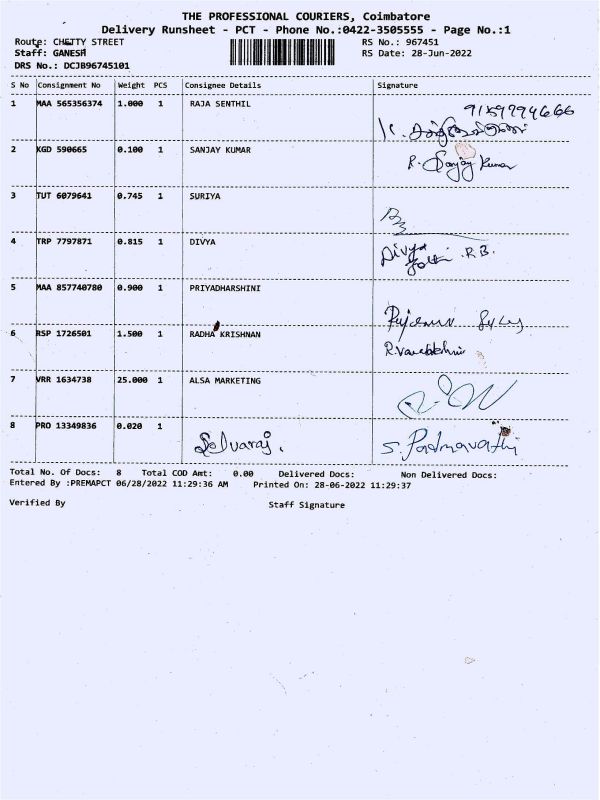 THE PROFESSIONAL COURIERS, Coimbatore
Delivery Runsheet - PCT - Phone No.:0422-3505555 - Page No.:1
Route: CHETTY STREET RS No.: 967451
Staff: GANESH RS Date: 28-Jun-2022
DRS No.: DCJB96745101
S No Consignment No Weight PCS Consignee Details Signature
1 MAA 565356374 1.000 1 RAJA SENTHIL
2 KGD 590665 0.100 1 SANJAY KUMAR R. Sanjay Kumar
3 TUT 6079641 0.745 1 SURIYA
4 TRP 7797871 0.815 1 DIVYA Divya
R.B.
5 MAA 857740780 0.900 1 PRIYADHARSHINI
6 RSP 1726501 1.500 1 RADHA KRISHNAN
7 VRR 1634738 25.000 1 ALSA MARKETING
8 PRO 13349836 0.020 1
Selvaraj. S. Padmavathi
Total No. Of Docs: 8 Total COD Amt: 0.00 Delivered Docs: Non Delivered Docs:
Entered By :PREMAPCT 06/28/2022 11:29:36 AM Printed On: 28-06-2022 11:29:37
Verified By Staff Signature